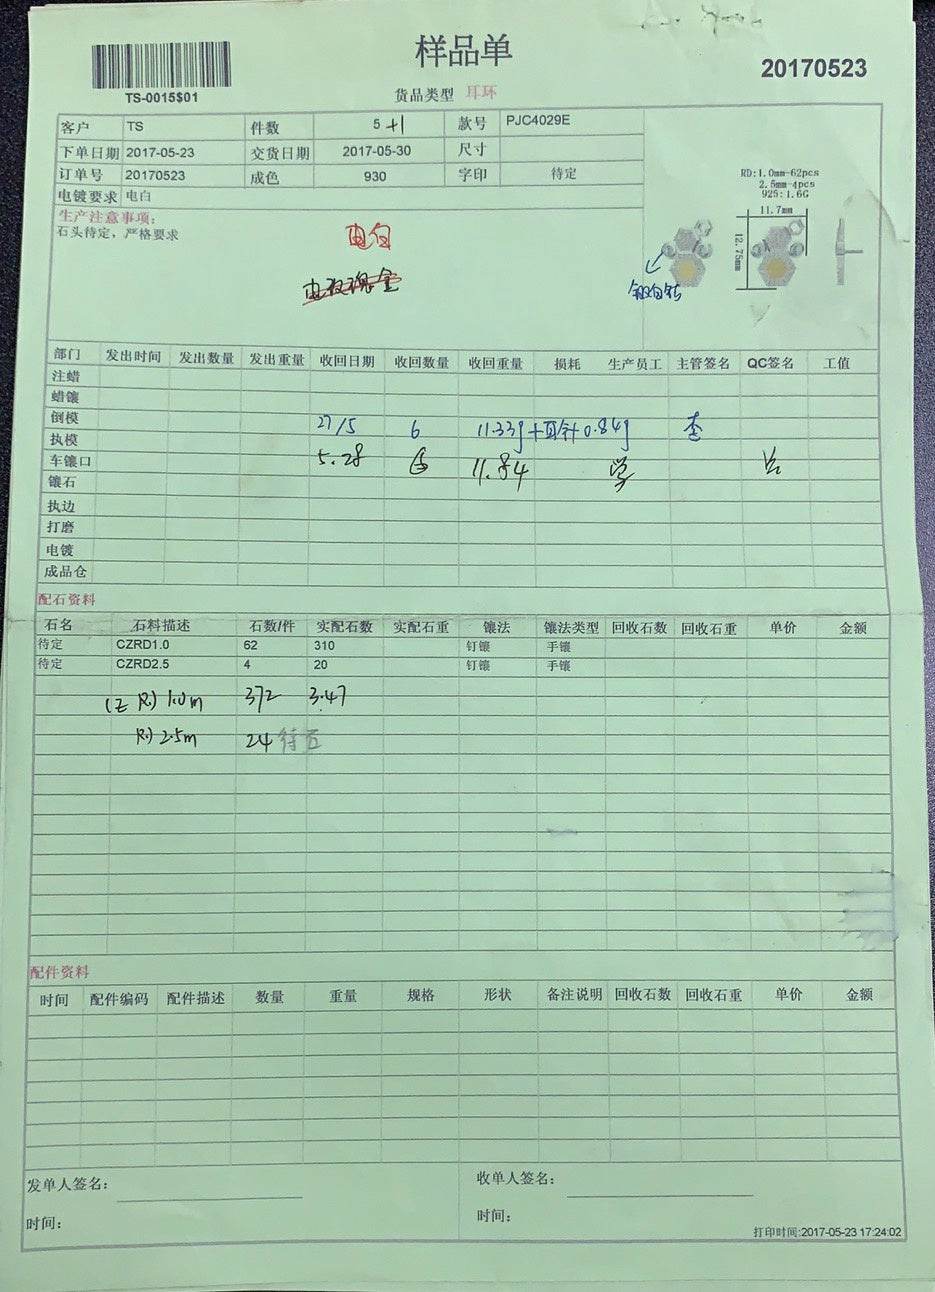 样品单
20170523
TS-0015$01
货品类型 耳环
客户 TS 件数 5 +1 款号 PJC4029E
下单日期 2017-05-23 交货日期 2017-05-30 尺寸
订单号 20170523 成色 930 字印 待定
电镀要求 电白
生产注意事项:
石头待定，严格要求
电白
RD:1.0mm-62pcs
2.5mm-4pcs
925:1.6G
11.7mm
12.75mm
部门 发出时间 发出数量 发出重量 收回日期 收回数量 收回重量 损耗 生产员工 主管签名 QC签名 工值
注蜡
蜡镶
倒模 27/5 6 11.33g+耳针0.84g
执模
车镶口 5.28 6 11.84
镶石
执边
打磨
电镀
成品仓
配石资料
石名 石料描述 石数/件 实配石数 实配石重 镶法 镶法类型 回收石数 回收石重 单价 金额
待定 CZRD1.0 62 310 钉镶 手镶
待定 CZRD2.5 4 20 钉镶 手镶
1.0m 372 3.47
2.5m 24
配件资料
时间 配件编码 配件描述 数量 重量 规格 形状 备注说明 回收石数 回收石重 单价 金额
发单人签名: 收单人签名:
时间: 时间:
打印时间:2017-05-23 17:24:02